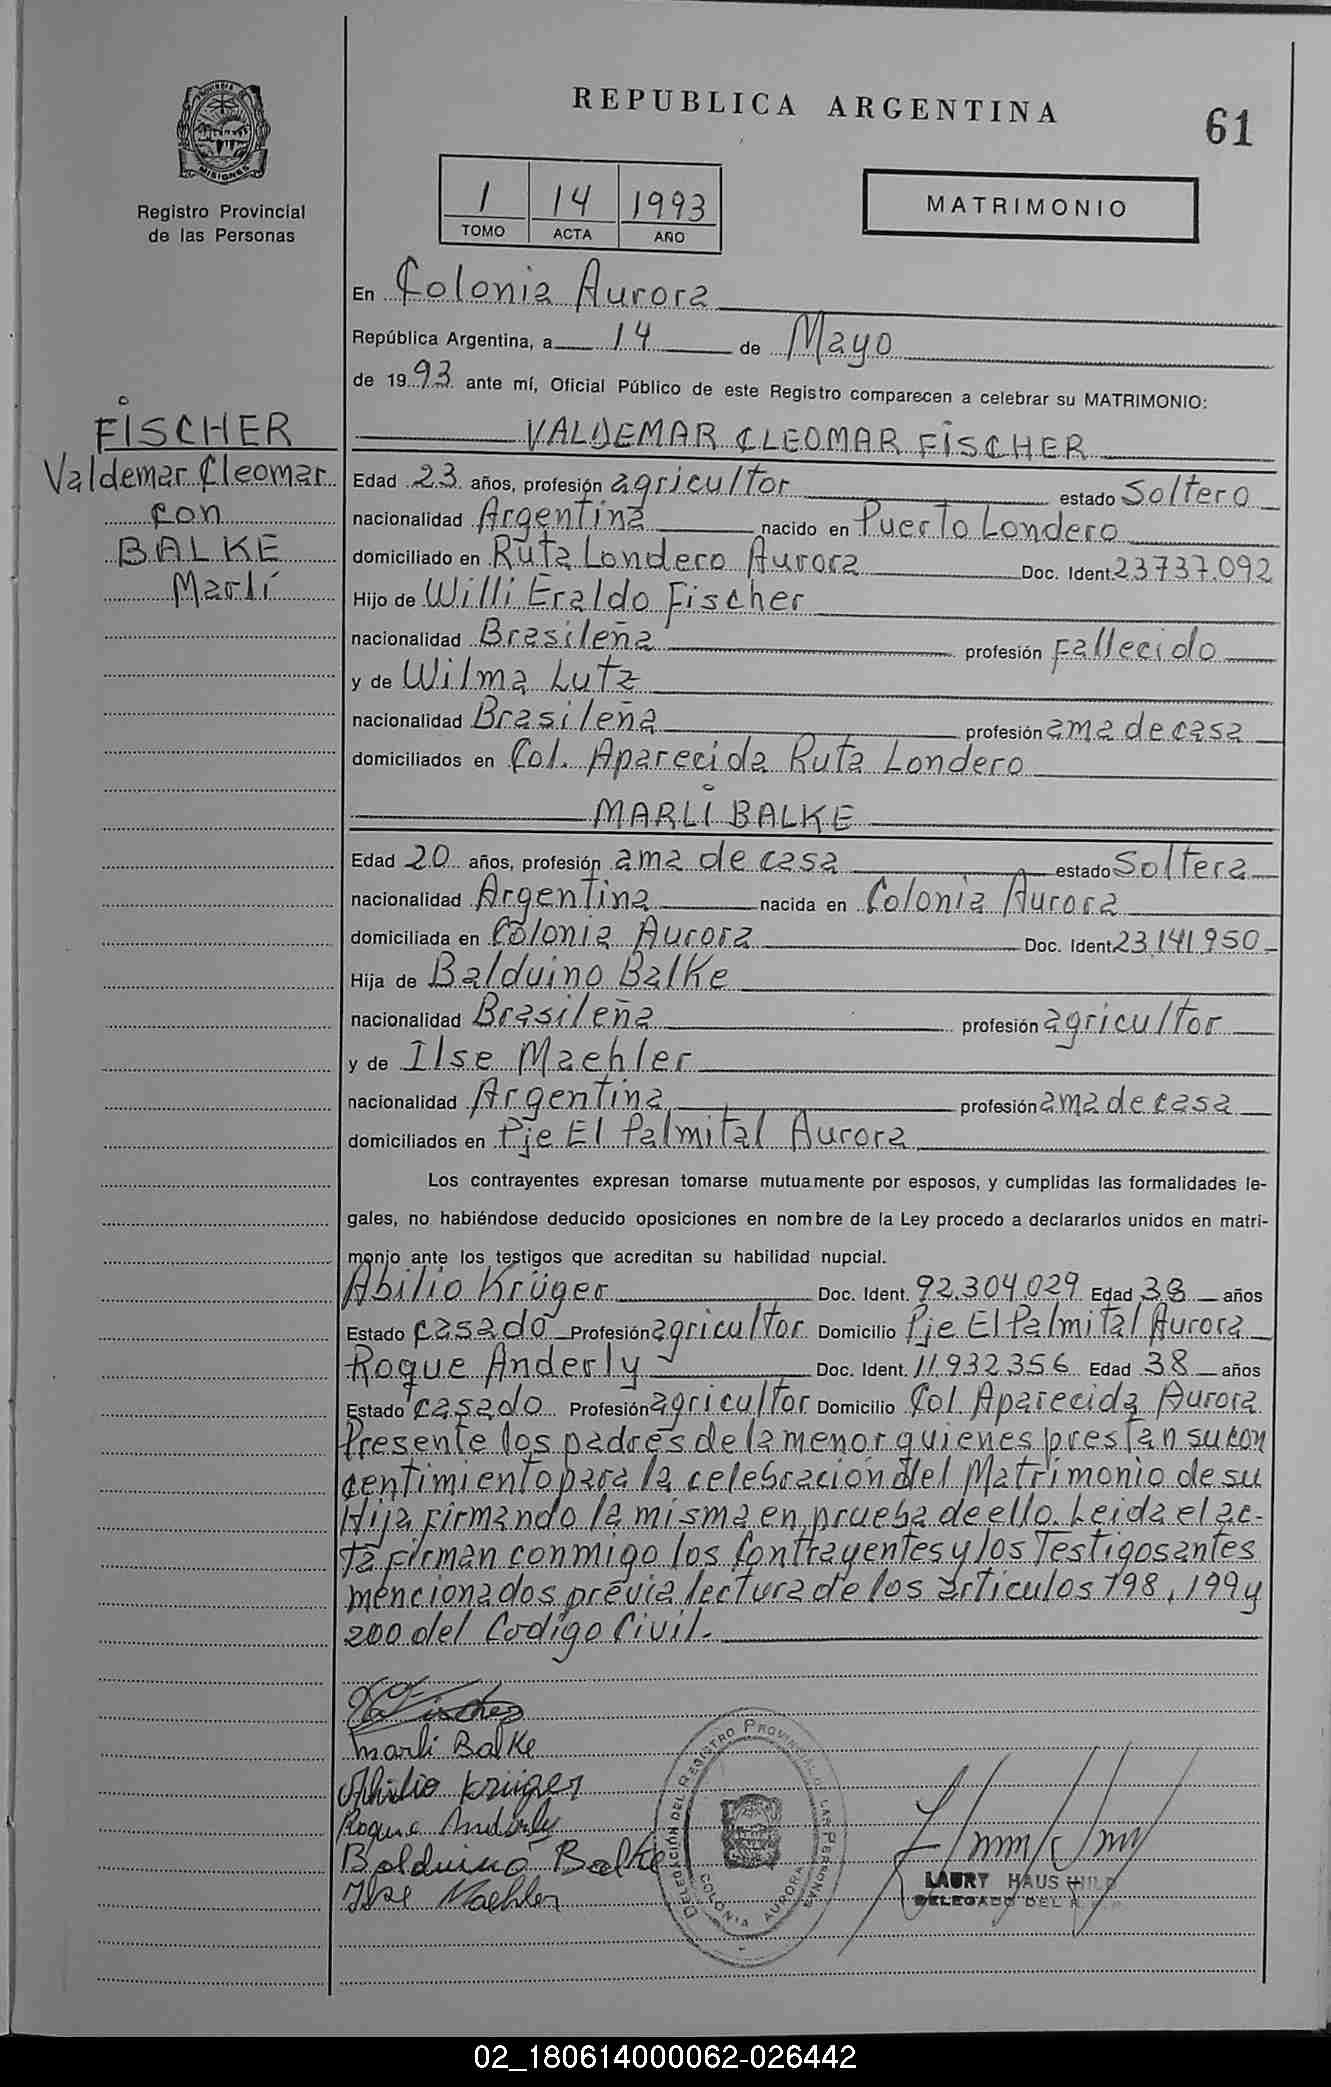 REPUBLICA ARGENTINA
61
PROVINCIA DE
MISIONES
Registro Provincial
de las Personas
1 14 1993
TOMO ACTA AÑO
MATRIMONIO
En Colonia Aurora
República Argentina, a 14 de Mayo
de 1993 ante mí, Oficial Público de este Registro comparecen a celebrar su MATRIMONIO:
FISCHER
Valdemar Cleomar
con
BALKE
Marlí
VALDEMAR CLEOMAR FISCHER
Edad 23 años, profesión agricultor estado Soltero
nacionalidad Argentina nacido en Puerto Londero
domiciliado en Ruta Londero Aurora Doc. Ident. 23.737.092
Hijo de Willi Eraldo Fischer
nacionalidad Brasileña profesión Fallecido
y de Wilma Lutz
nacionalidad Brasileña profesión ama de casa
domiciliados en Col. Aparecida Ruta Londero
MARLI BALKE
Edad 20 años, profesión ama de casa estado Soltera
nacionalidad Argentina nacida en Colonia Aurora
domiciliada en Colonia Aurora Doc. Ident. 23.141.950
Hija de Balduino Balke
nacionalidad Brasileña profesión agricultor
y de Ilse Maehler
nacionalidad Argentina profesión ama de casa
domiciliados en Pje El Palmital Aurora
Los contrayentes expresan tomarse mutuamente por esposos, y cumplidas las formalidades le-
gales, no habiéndose deducido oposiciones en nombre de la Ley procedo a declararlos unidos en matri-
monio ante los testigos que acreditan su habilidad nupcial.
Abilio Krüger Doc. Ident. 92.304.029 Edad 38 años
Estado casado Profesión agricultor Domicilio Pje El Palmital Aurora
Roque Anderly Doc. Ident. 11.932.356 Edad 38 años
Estado casado Profesión agricultor Domicilio Col. Aparecida Aurora
Presente los padres de la menor quienes prestan su con
centimiento para la celebracion del Matrimonio de su
Hija firmando la misma en prueba de ello. Leida el ac-
ta firman conmigo los Contrayentes y los Testigos antes
mencionados previa lectura de los articulos 198, 199 y
200 del Codigo Civil.
Fischer
Marli Balke
Abilio Krüger
Roque Anderly
Balduino Balke
Ilse Maehler
DELEGACIÓN DEL REGISTRO PROVINCIAL DE LAS PERSONAS
COLONIA AURORA
LAURY HAUS HILD
DELEGADO DEL R.
02_180614000062-026442